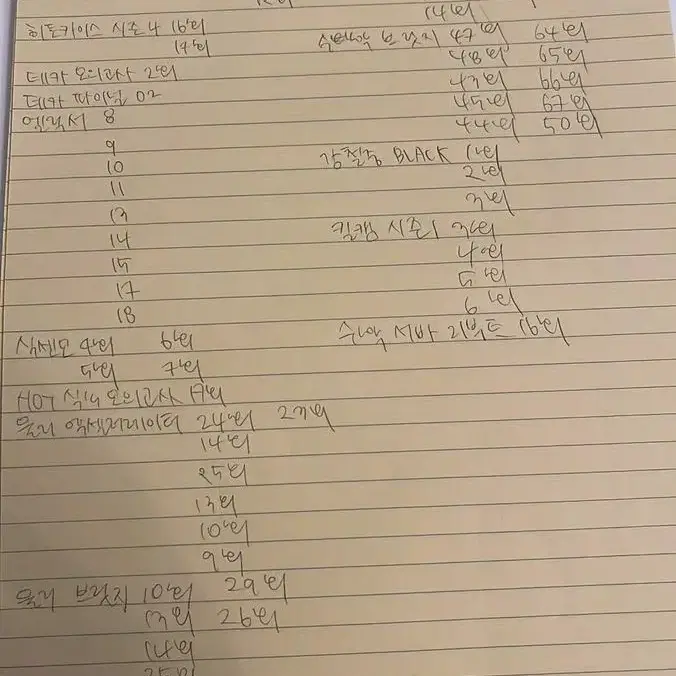 14회
히토키이스 시즌4 16회
17회
데카 모의고사 2회
데카 파이널 02
엣지 8
9
10
11
13
14
15
17
18
식센모 4회 6회
5회 7회
HOT 식 모의고사 A회
물리 엑셀러레이터 24회 27회
14회
25회
13회
10회
9회
물리 브릿지 10회 29회
13회 26회
14회
25회
브릿지 47회 64회
48회 65회
43회 66회
45회 67회
44회 50회
강철중 BLACK 1회
2회
3회
킬캠 시즌1 3회
4회
5회
6회
수학 서바 리부트 16회